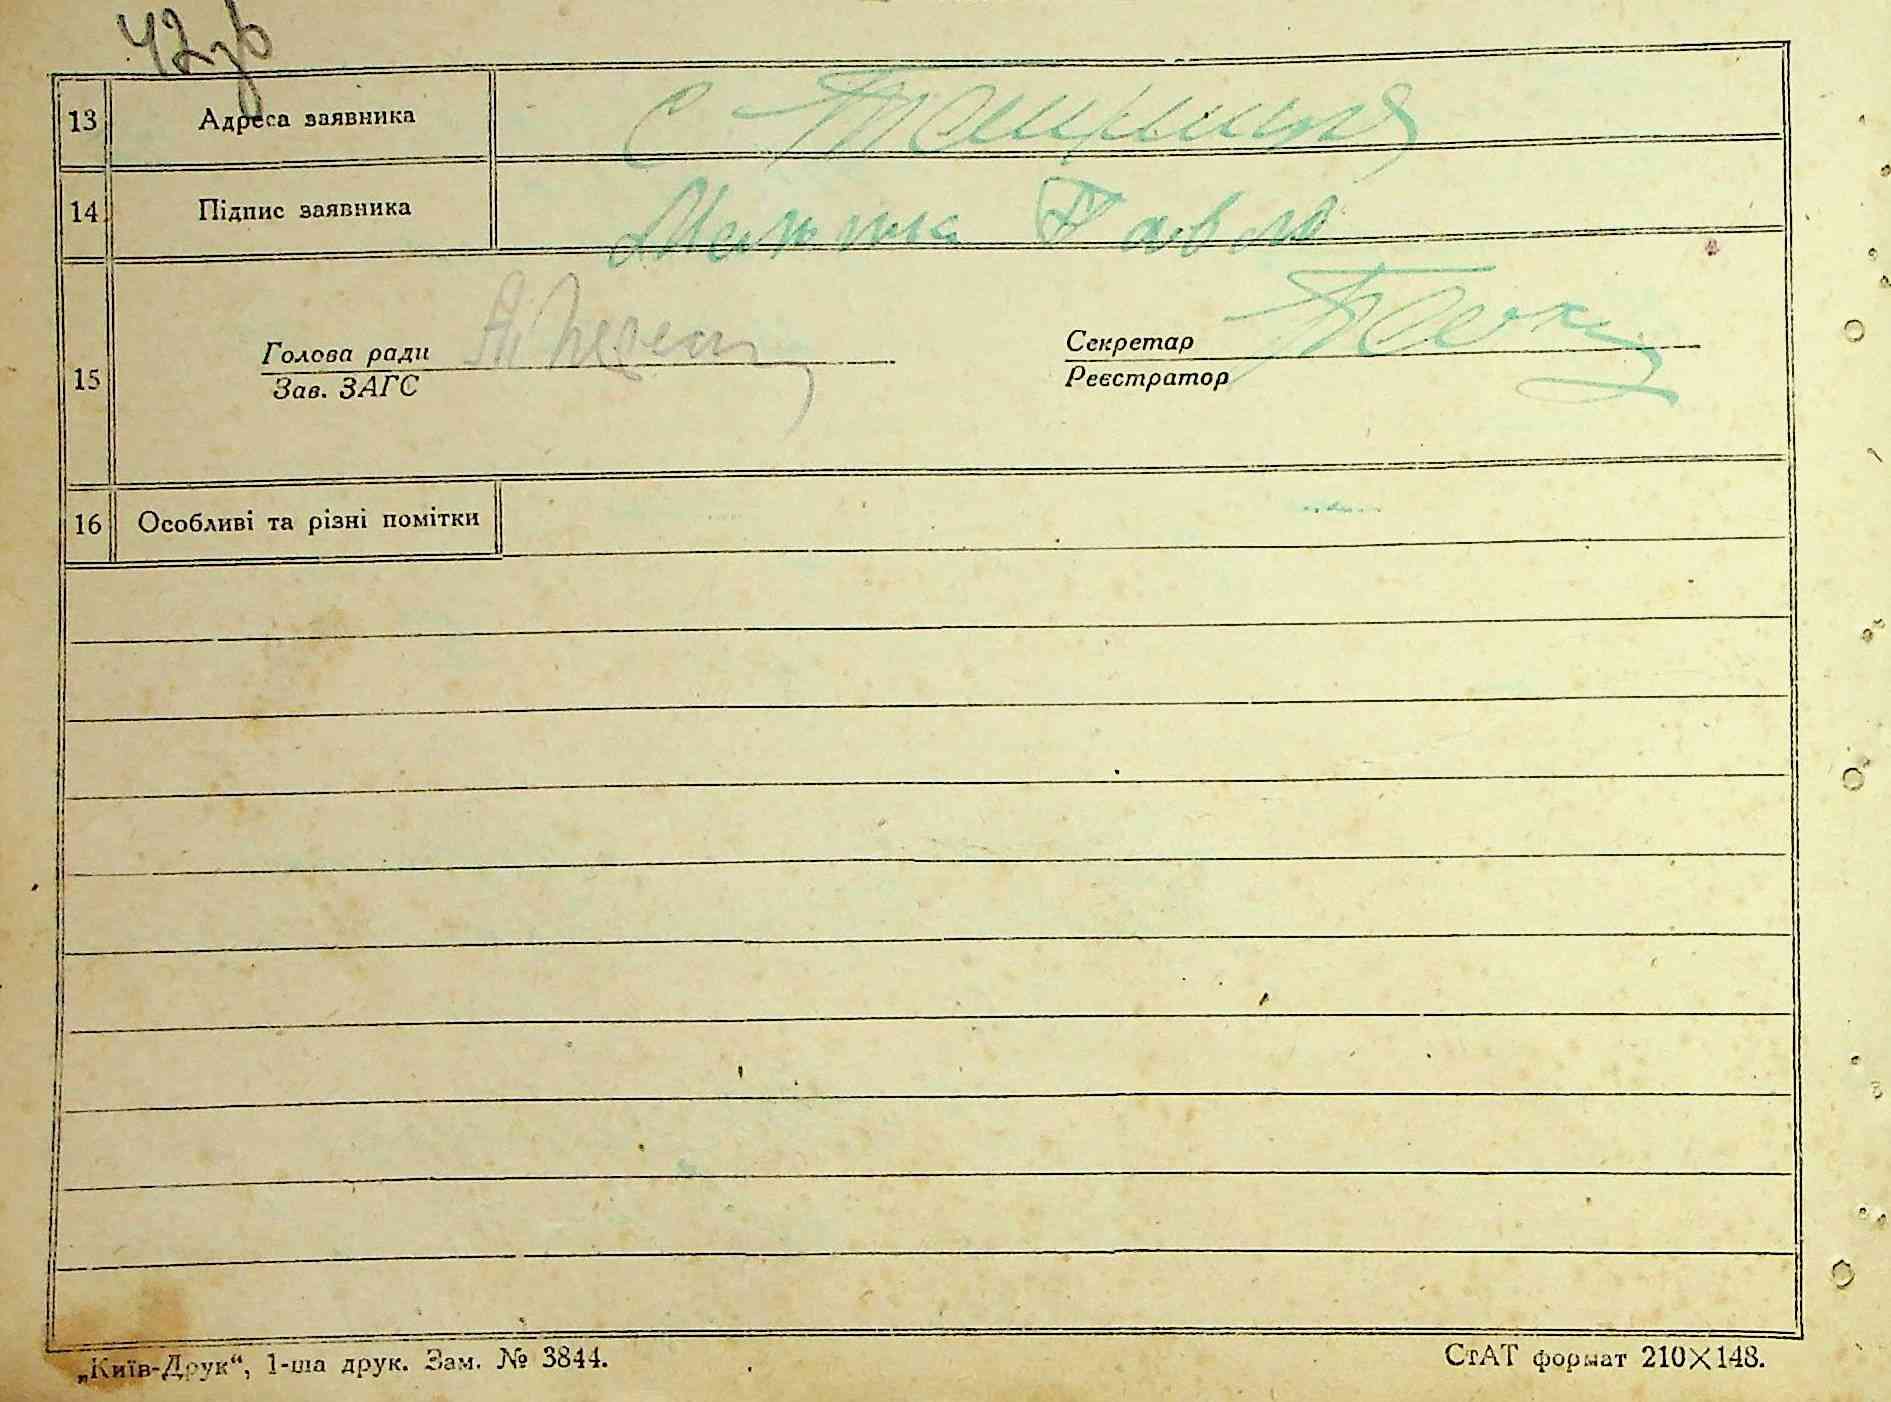 42зв
13 Адреса заявника с
14 Підпис заявника Павло
15 Голова ради Секретар
Зав. ЗАГС Реєстратор
16 Особливі та різні помітки
„Київ-Друк“, 1-ша друк. Зам. № 3844. СтАТ формат 210×148.